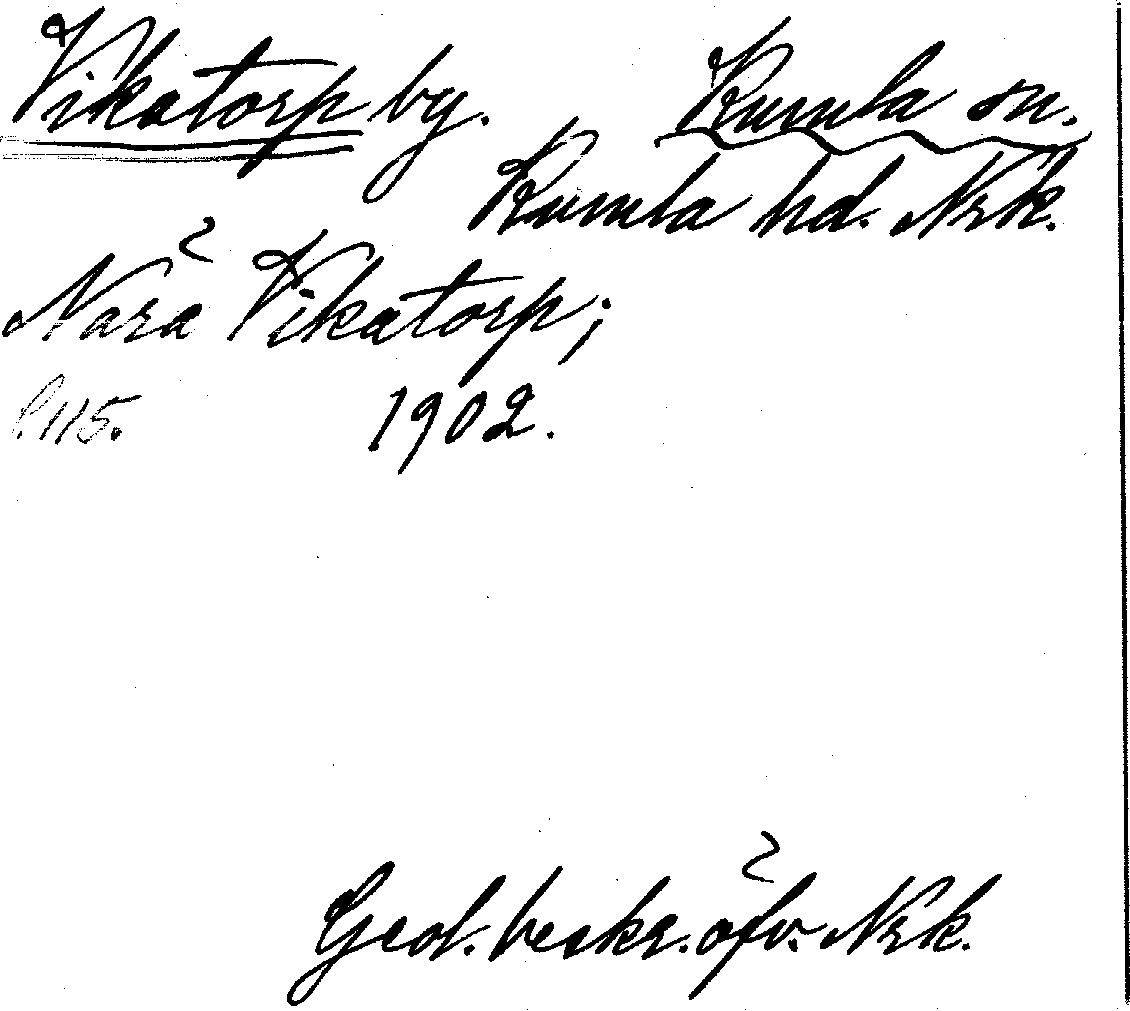 Vikatorp by. Kumla sn.
Kumla hd. Nrk.
Nära Vikatorp;
S.115. 1902.
Geol. beskr. öfv. Nrk.